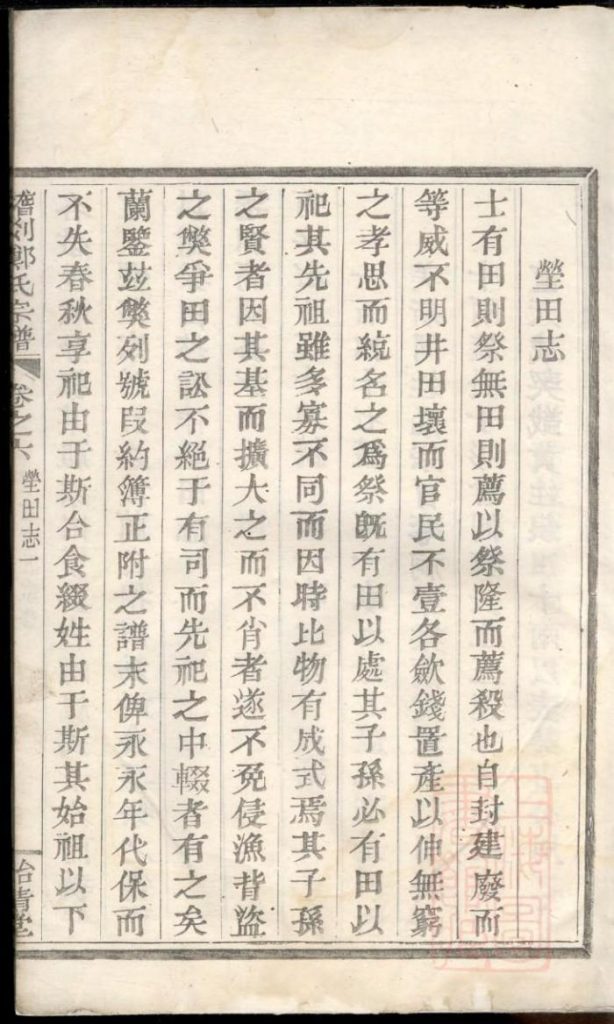 塋田志
士有田則祭無田則薦以祭隆而薦殺也自封建廢而
等威不明井田壞而官民不壹各斂錢置產以伸無窮
之孝思而統名之爲祭旣有田以處其子孫必有田以
祀其先祖雖多寡不同而因時比物有成式焉其子孫
之賢者因其基而擴大之而不肖者遂不免侵漁背盜
之獘爭田之訟不絕于有司而先祀之中輟者有之矣
蘭鑒玆獘列號段約簿正附之譜末俾永永年代保而
不失春秋享祀由于斯合食綴姓由于斯其始祖以下
剡鄭氏宗譜 卷之六 塋田志一